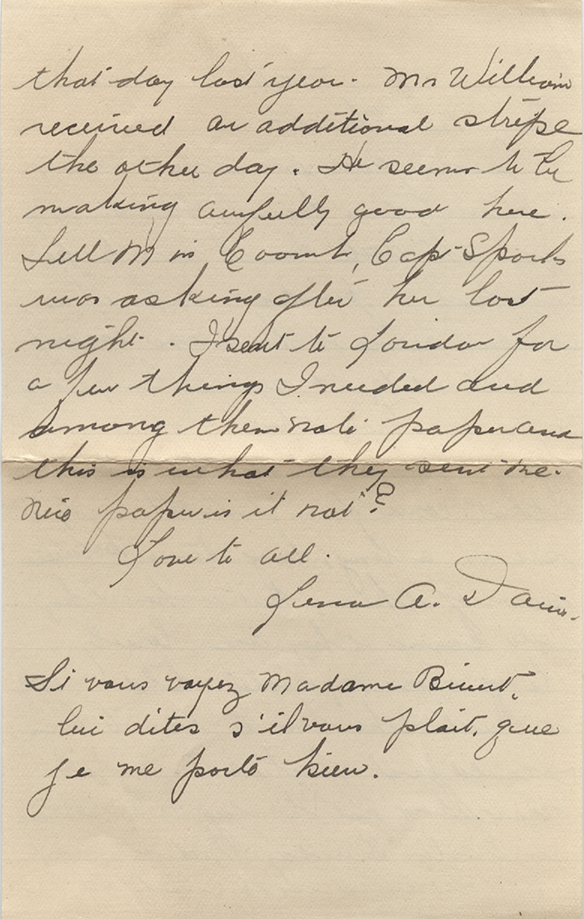 that day last year. Mr William
received an additional stripe
the other day. He seems to be
making awfully good here.
Tell M Coomb, Cap Sparks
was asking after her last
night. I sent to London for
a few things I needed and
among them note paper and
this is what they sent me.
Nice paper is it not?
Love to all.
A.
Si vous voyez Madame
lui dites s'il vous plait, que
je me porte bien.